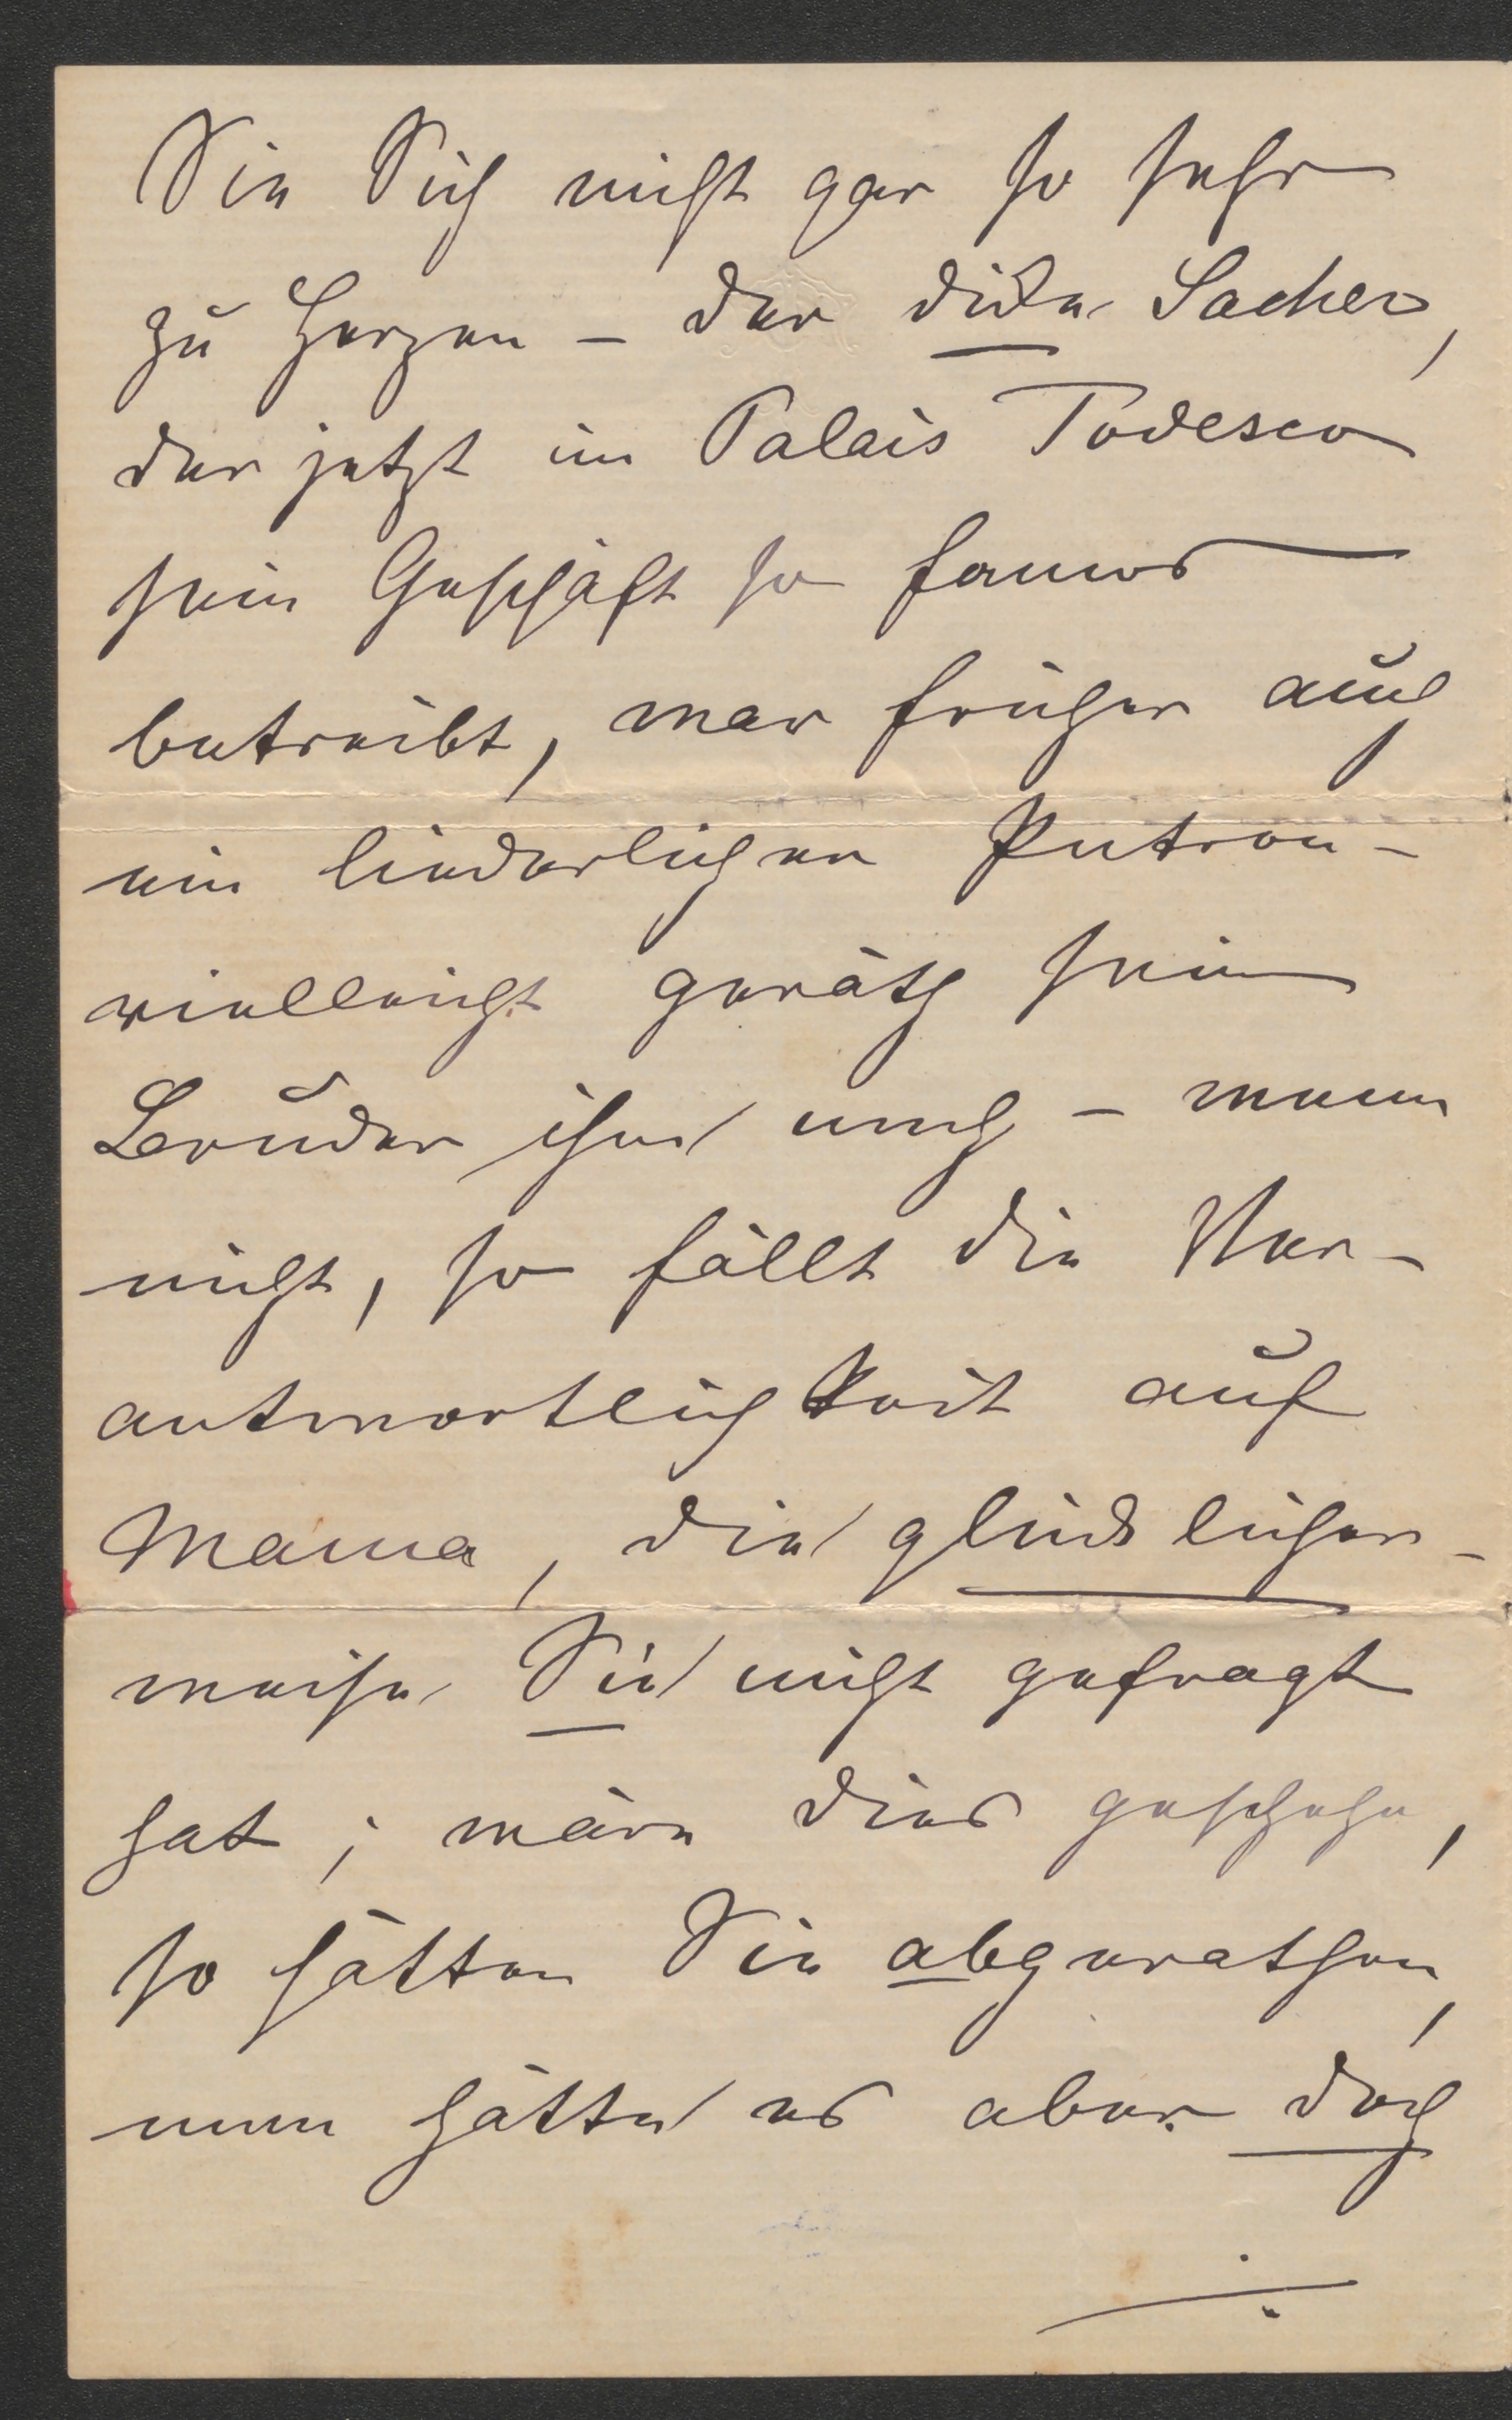 Sie Sich nicht gar so sehr
zu Herzen – der dicke Sacher,
der jetzt im Palais Todesco
sein Geschäft so famos
betreibt, war früher auch
ein liederlicher Putron –
vielleicht geräth sein
Bruder ihm nach – wenn
nicht, so fällt die Ver-
antwortlichkeit auf
Mama, die glücklicher-
weise Sie nicht gefragt
hat; wäre dies geschehn,
so hätten Sie abgerathen,
nun hätte es aber doch